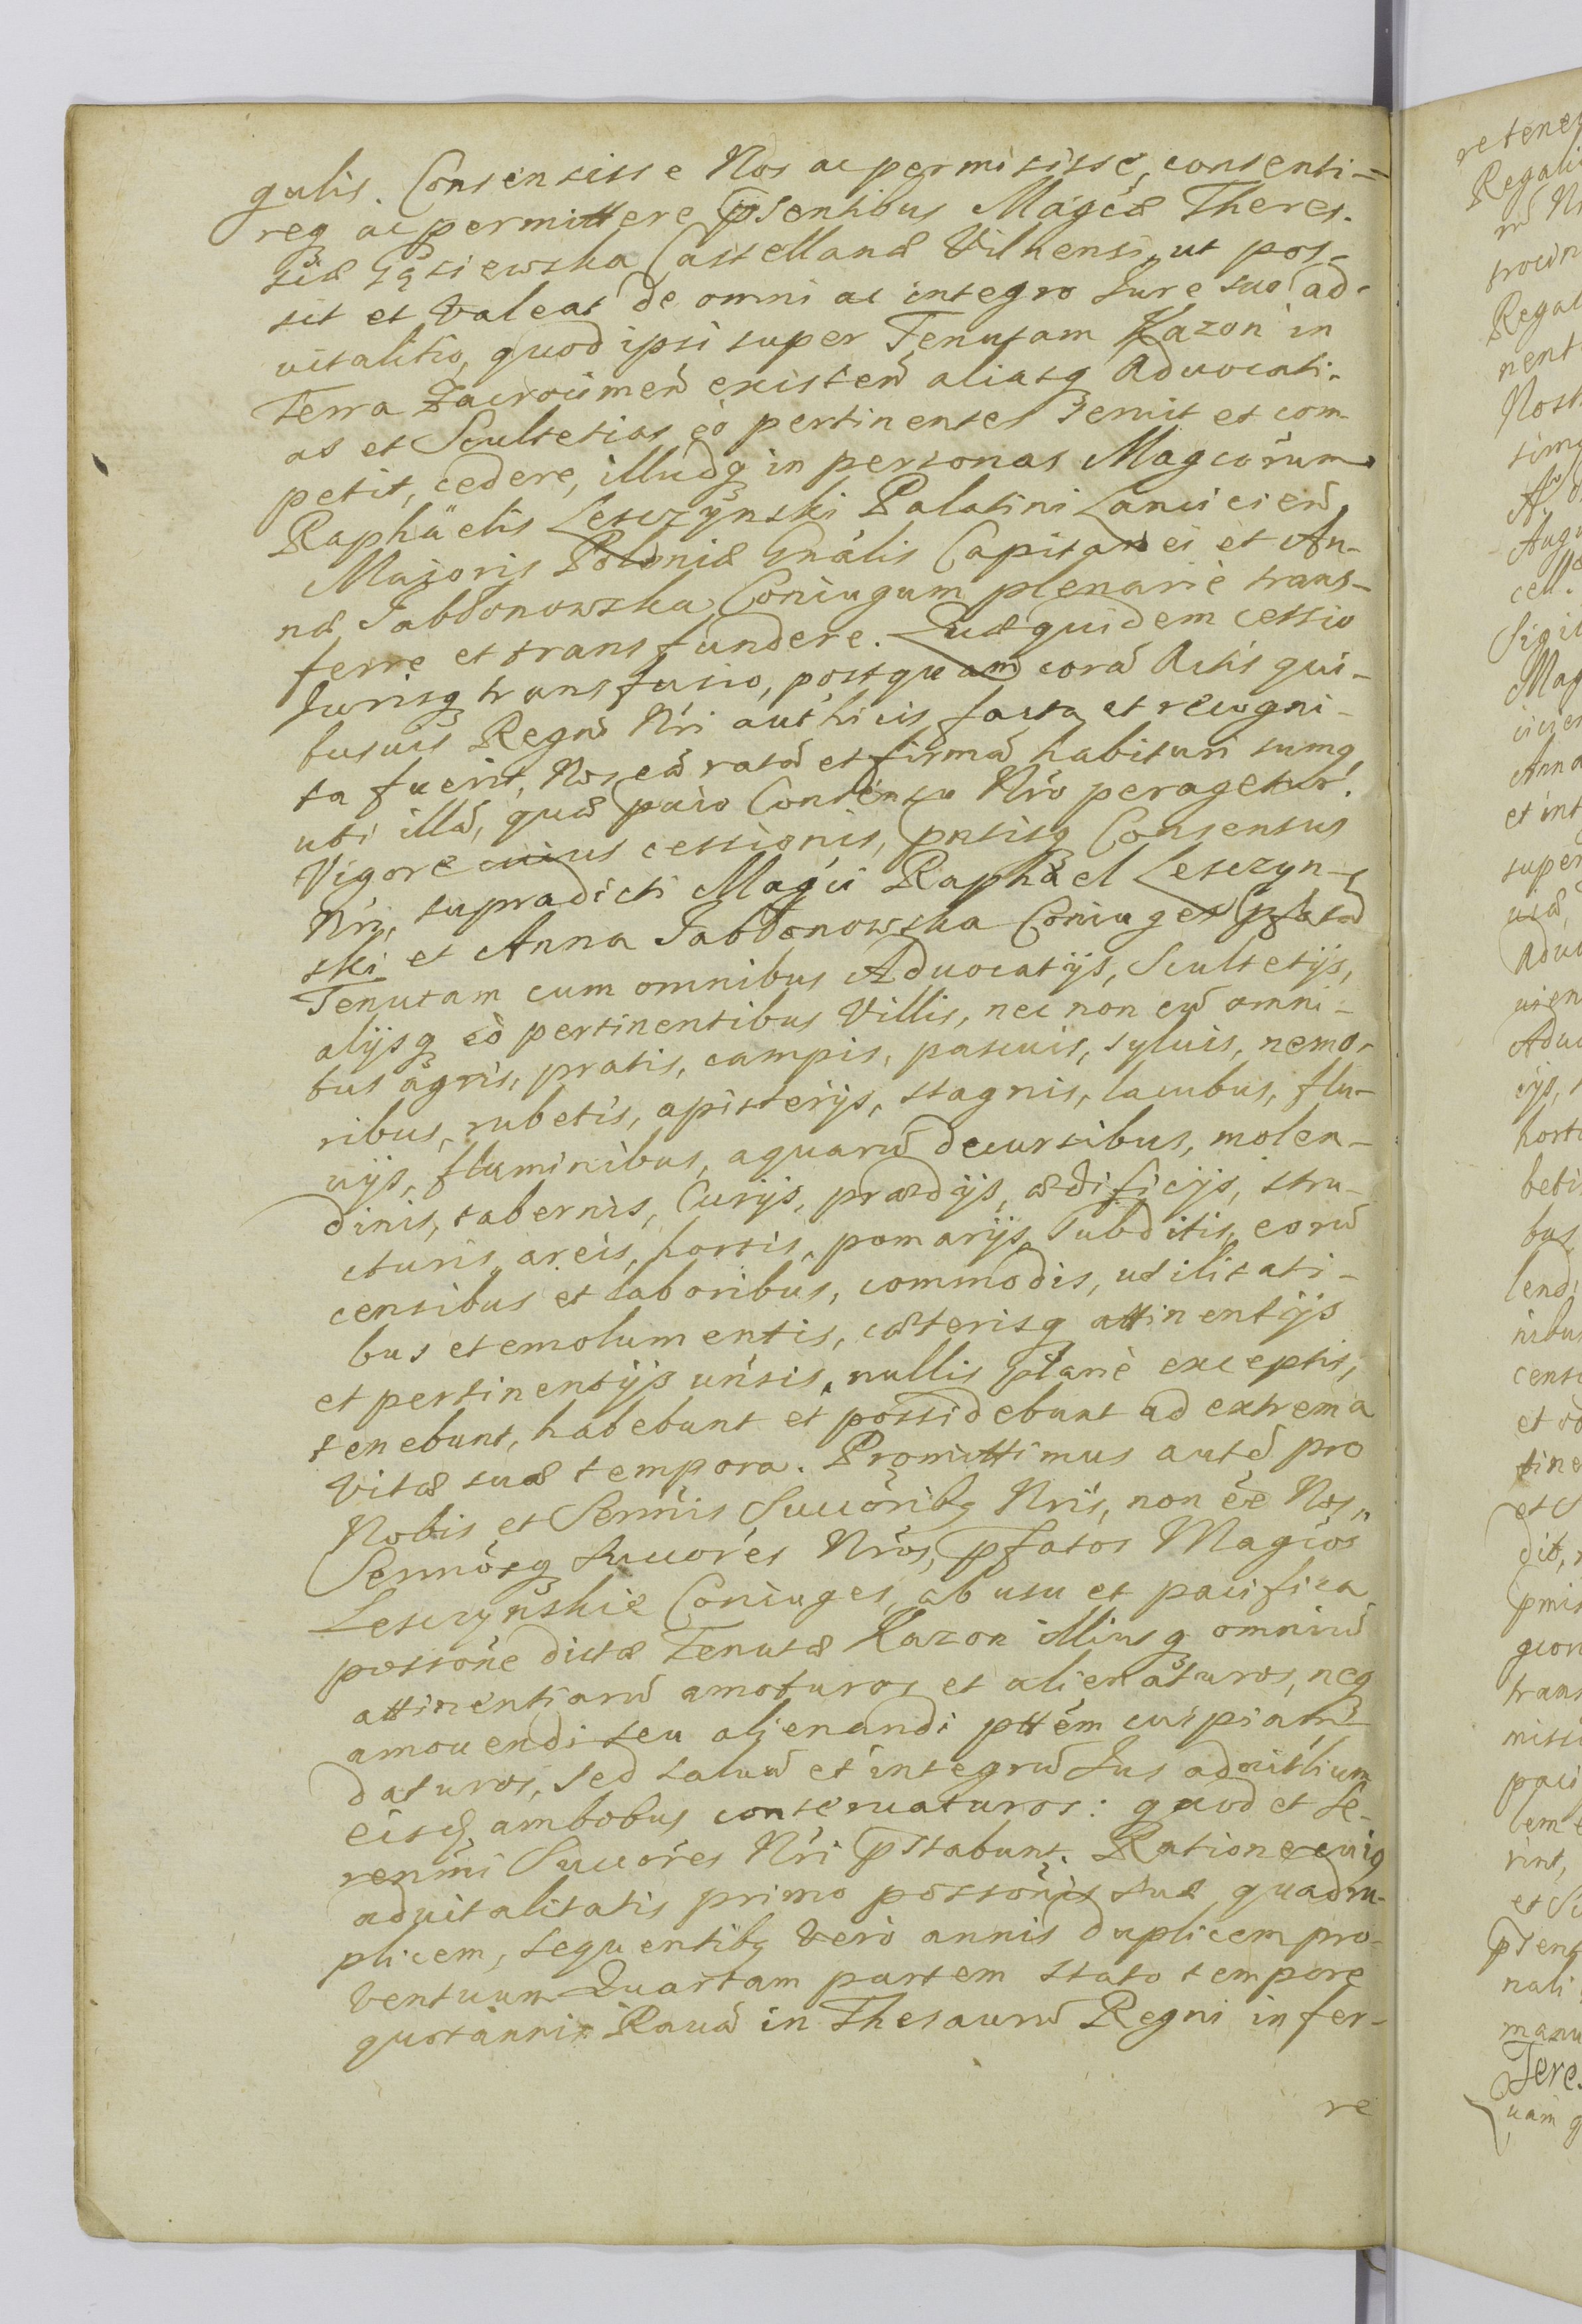 gulis. Consensisse Nos ac permisisse, consenti=
req ac permittere pnsentibus Magcæ Theres.
siæ Gąsiewska Castellanæ Vilnensi, ut pos-
sit et valeat de omni ac integro Jure suo ad-
vitalitio, quod ipsi super Tenutam Kazon in
Terra Zacrocimen existen aliasq Advocati-
as et Scultetias eò pertinentes servit et com
petit, cedere, illudq in personas Magcorum
Raphäelis Lesczynski Palatini Lancicien,
Majoris Poloniæ Gnalis Capitanei et An-
næ Jabłonowska Coniugum plenariè trans-
ferre et transfundere. Quæquidem cessio
Jurisq transfusio, postquam corã Actis qui-
busuis Regni Nri authcis facta et recogni-
ta fuerit, Nos eã ratã et firmã habituri sumq,
uti illã, quæ pcio Consensu Nro peragetur.
Vigore cuius cessionis, pntisq Consensus
Nri, supradicti Magci Raphäel Lesczyn-
ski et Anna Jabłonowska Coniuges pfatã
Tenutam cum omnibus Advocatijs, Scultetijs,
alijsq eò pertinentibus Villis, nec non cũ omni-
bus agris, pratis, campis, pascuis, syluis, nemo-
ribus, rubetis, apisterijs, stagnis, lacubus, flu-
uijs, fluminibus, aquarũ decursibus, molen-
dinis, tabernis, Curijs, prædijs, ædificijs, stru-
cturis, areis, hortis, pomarijs, Subditis, eorũ
censibus et laboribus, commodis, utilitati-
bus et emolumentis, cæterisq attinentijs
et pertinentijs unsis, nullis planè exceptis,
tenebunt, habebunt et possidebunt ad extrema
vitæ suæ tempora. Promittimus autẽ pro
Nobis et Sermis Succoribq Nris, non ee Nos,
Sermosq Succores Nros, pfatos Magcos
Lesczyńskie Coniuges, ab usu et pacifica
possone dictæ Tenutæ Kazon illiusq omniũ
attinentiarũ amoturos et alienaturos, neq
amouendi seu alienandi pttem cuipiam
daturos, sed saluũ et integrũ Jus aduitlium
eisd ambobus conseruaturos: quod et Se-
renmi Succores Nri pstabunt. Ratione cuiq
aduitalitatis primo possonis suæ quadru-
plicem, sequentibq verò annis duplicem pro-
ventuum Quartam partem stato tempore
quotannis Rauã in Thesaurũ Regni infer-
re